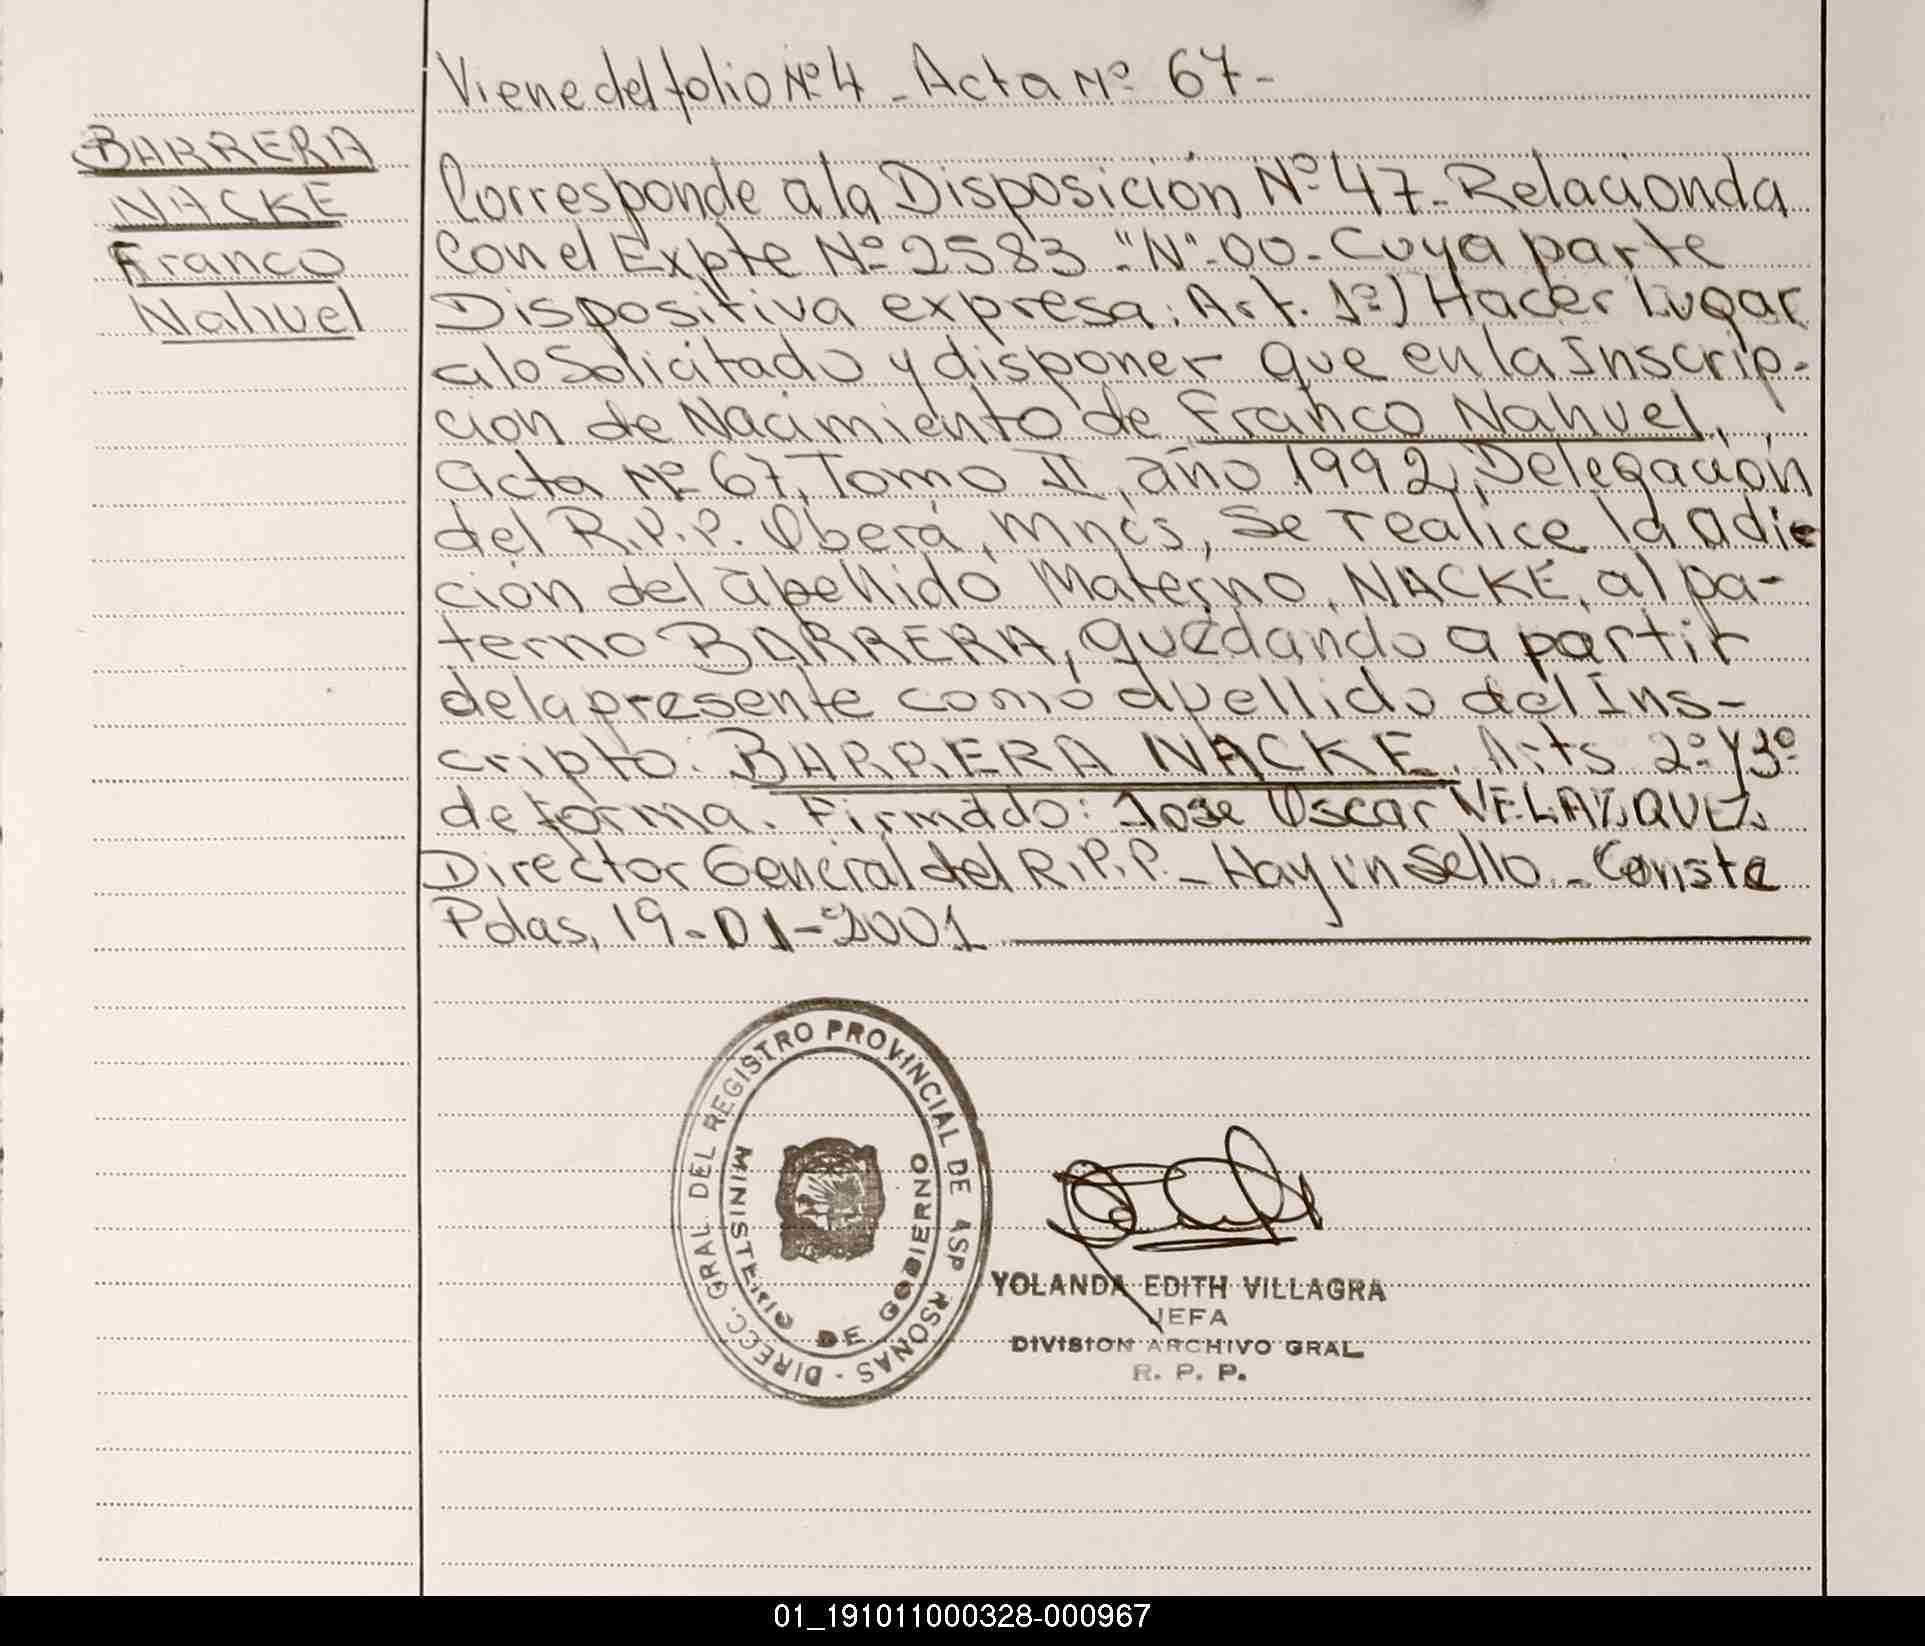 Viene del folio Nº 4 - Acta Nº 67 -
BARRERA
NACKE
Franco
Nahuel
Corresponde a la Disposición Nº 47 - Relacionda
Con el Expte Nº 2583 "N". 00 - Cuya parte
Dispositiva expresa: Art. 1º) Hacer Lugar
a lo Solicitado y disponer que en la Inscrip-
ción de Nacimiento de Franco Nahuel,
acta Nº 67, Tomo II, año 1992, Delegación
del R.P.P. Oberá, Mnes, Se realice la adic
ción del apellido Materno, NACKE, al pa-
terno BARRERA, quedando a partir
de la presente como apellido del Ins-
cripto: BARRERA NACKE. Arts 2º y 3º
de forma. Firmado: Jose Oscar VELAZQUEZ
Director General del R.P.P. - Hay un Sello - Conste
Pdas, 19-01-2001
DIRECC. GRAL. DEL REGISTRO PROVINCIAL DE LAS P RSONAS -
MINISTERIO DE GOBIERNO
YOLANDA EDITH VILLAGRA
JEFA
DIVISION ARCHIVO GRAL
R. P. P.
01_191011000328-000967